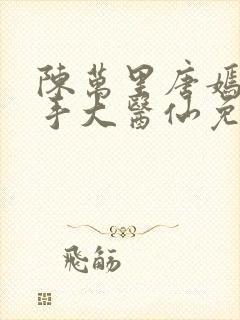 陳萬里唐嫣
手大醫仙免
飛觞